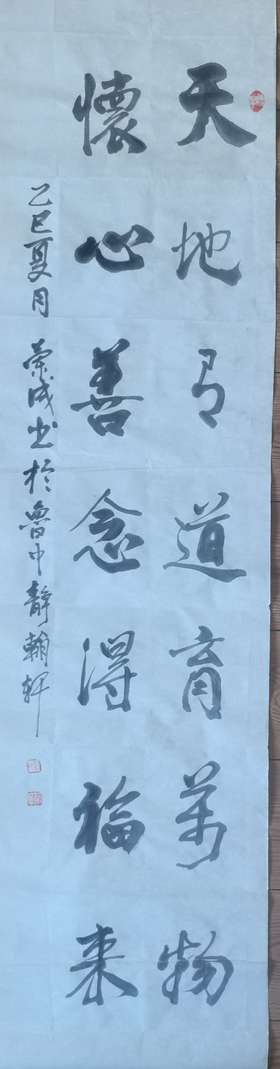 天地有道育萬物
懷心善念得福来
乙巳夏月 荣成书於魯中靜翰軒